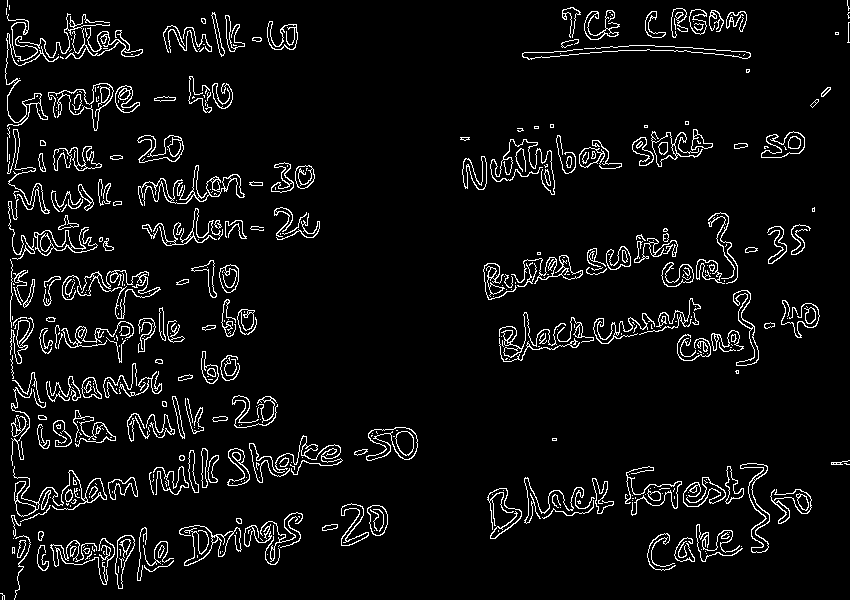 Butter Milk - 10
Grape - 40
Lime - 20
Musk melon - 30
water melon - 20
Orange - 70
Pineapple - 60
Musambi - 60
Pista Milk - 20
Badam Milk Shake - 50
Pineapple Drings - 20
ICE CREAM
Nuttybar stick - 50
Butter scotch cone } - 35
Black current cone } - 40
Black Forest Cake } 50